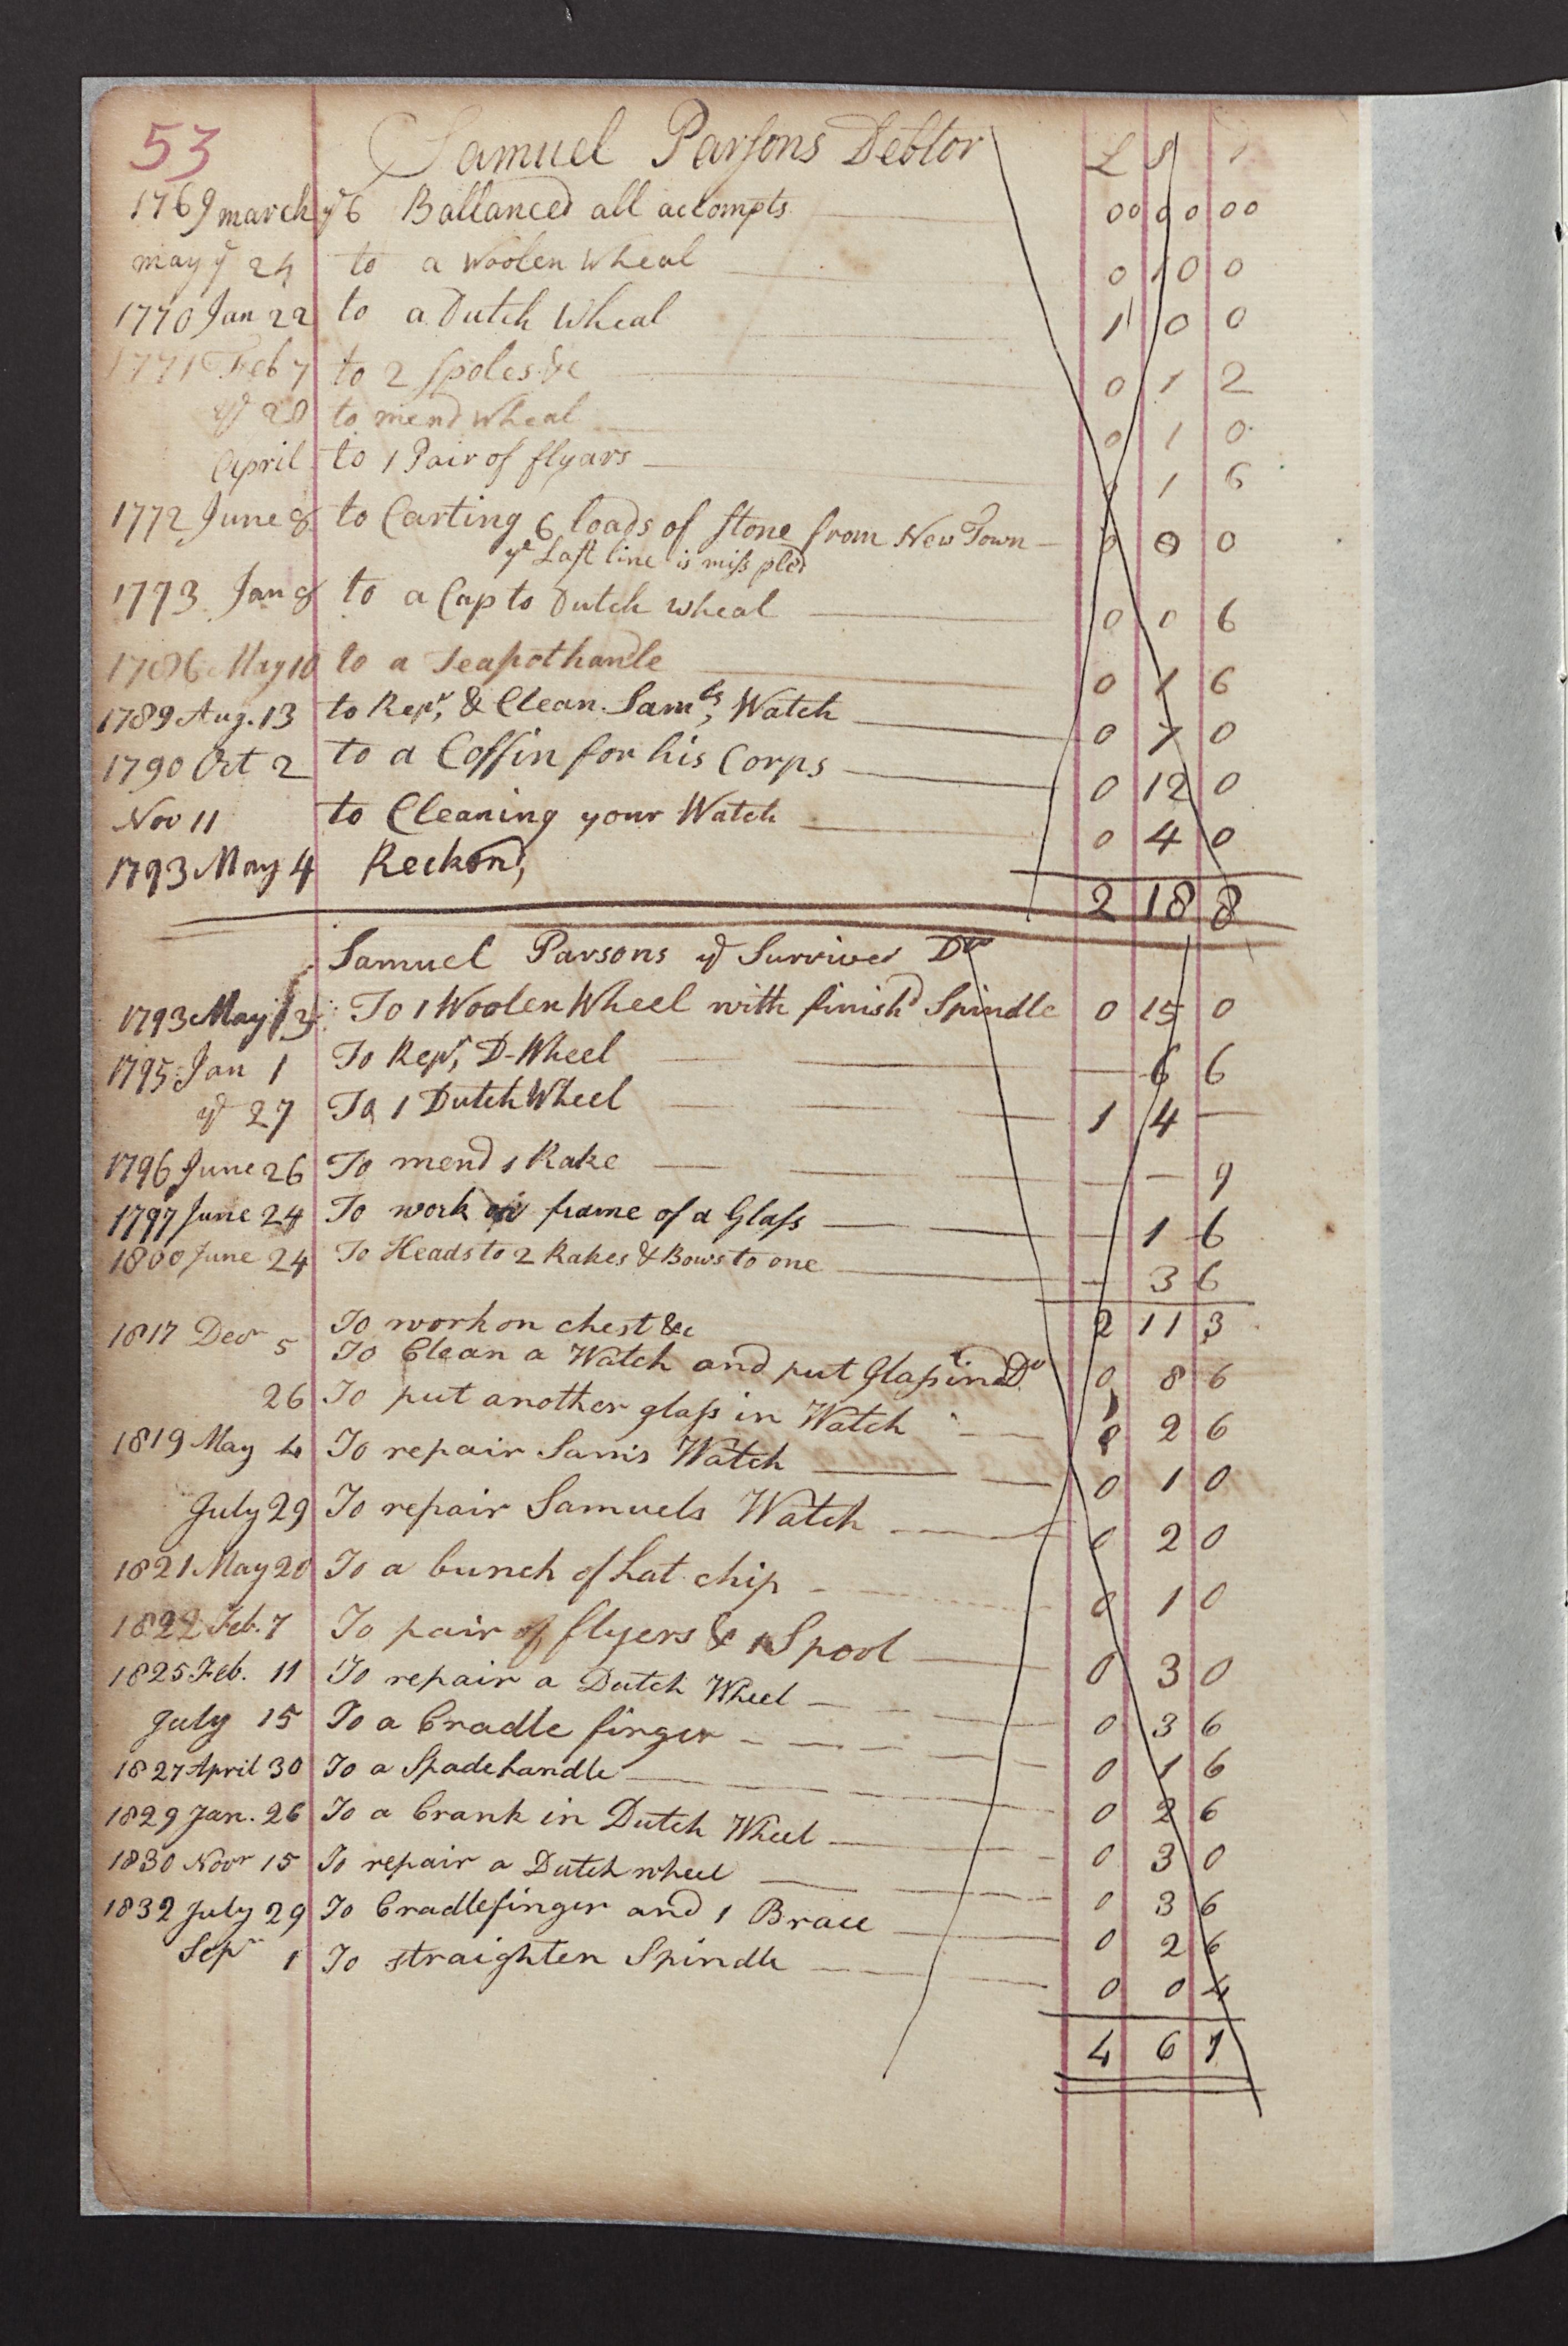 53 Samuel Parsons Debtor L S
1769 march ye 6 Ballanced all accompts 00 00 00
may ye 24 to a Woolen Wheal 0 10 0
1770 Jan 22 to a Dutch Wheal 1 0 0
1771 Feb 7 to 2 Spoles &c 0 1 2
ye 28 to mend Wheal 0 1 0
April to 1 Pair of flyars 0 1 6
1772 June 8 to Carting 6 loads of stone from New Town 0 0 0
ye Last line is miss pled
1773 Jan 8 to a Cap to Dutch wheal 0 0 6
1786 May 10 to a Teapot handle 0 1 6
1789 Aug. 13 to Repr, & Clean. Samls, Watch 0 7 0
1790 Oct 2 to a Coffin for his Corps 0 12 0
Nov 11 to Cleaning your Watch 0 4 0
1793 May 4 Reckond,
2 18 8
Samuel Parsons ye Surviver Dr
1793 May 13 To 1 Woolen Wheel with finishd Spindle 0 15 0
1795 Jan 1 To Repr, D-Wheel — 6 6
ye 27 To 1 Dutch Wheel 1 4 —
1796 June 26 To mend 1 Rake — — 9
1797 June 24 To work on frame of a Glass — 1 6
1800 June 24 To Heads to 2 Rakes & Bows to one — 3 6
2 11 3
1817 Decr 5 To work on chest &c
To Clean a Watch and put Glass in Do 0 8 6
26 To put another glass in Watch 0 2 6
1819 May 4 To repair Sam's Watch 0 1 0
July 29 To repair Samuels Watch 0 2 0
1821 May 20 To a bunch of hat chip 0 1 0
1822 Feb. 7 To pair of flyers & 1 Spool 0 3 0
1825 Feb. 11 To repair a Dutch Wheel 0 3 6
July 15 To a Cradle finger 0 1 6
1827 April 30 To a Spade handle 0 2 6
1829 Jan. 26 To a Crank in Dutch Wheel 0 3 0
1830 Novr 15 To repair a Dutch wheel 0 3 6
1832 July 29 To Cradlefinger and 1 Brace 0 2 6
Sepr 1 To straighten Spindle 0 0 4
4 6 7